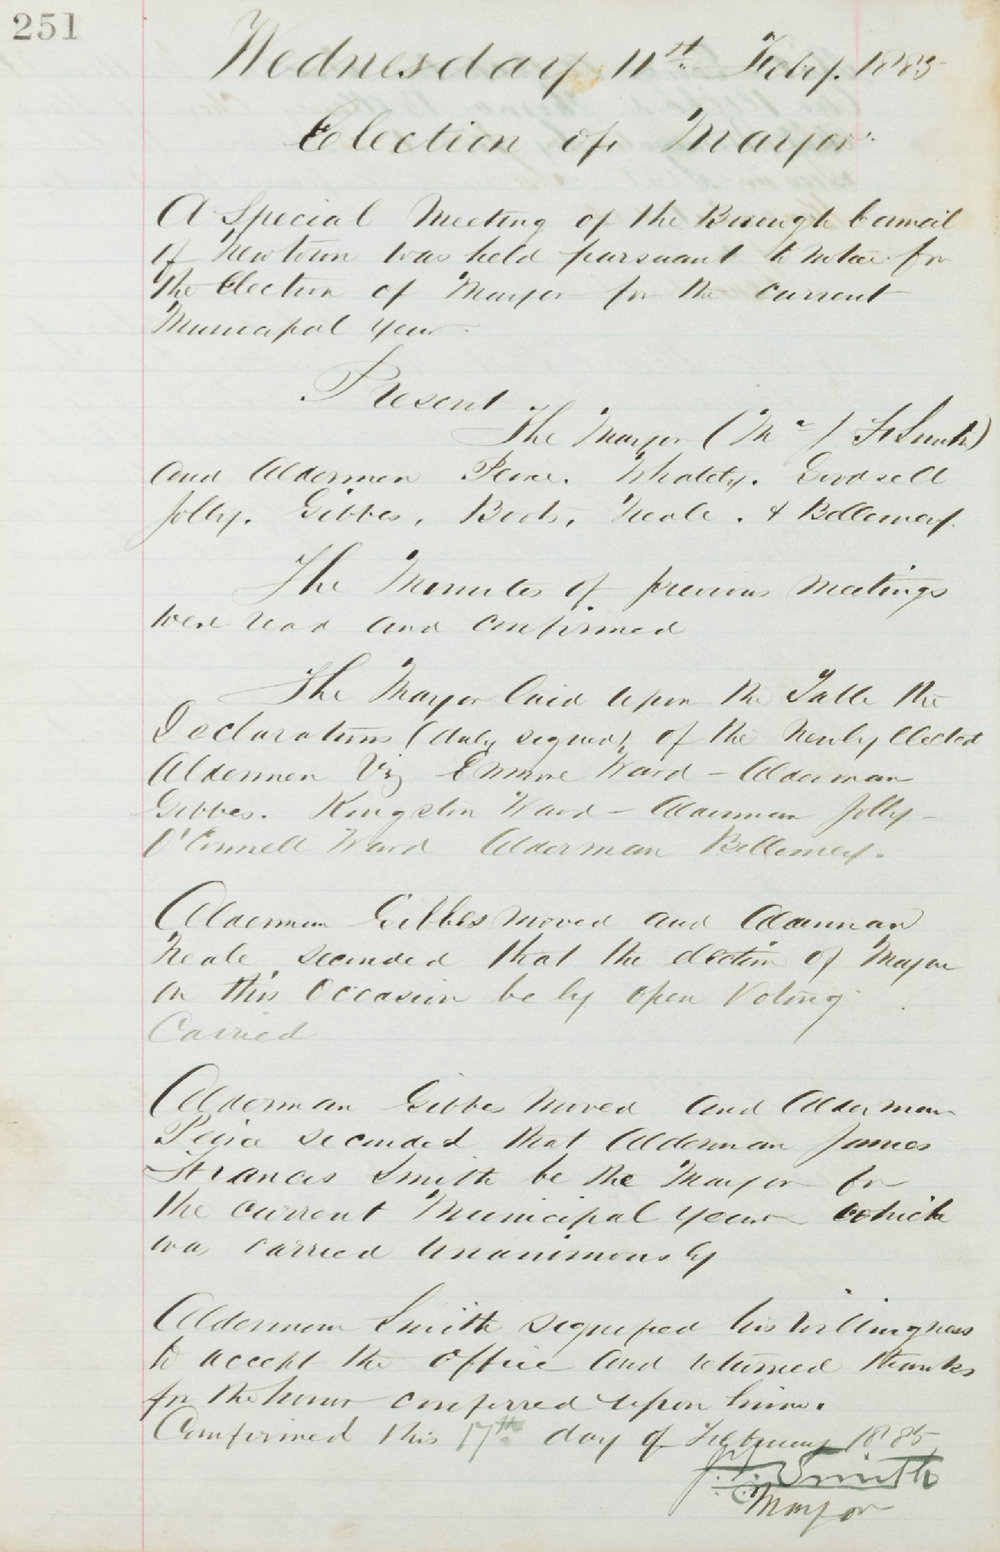 251
Wednesday 11st Feby. 1885
Election of Mayor
A Special Meeting of the Borough Council
of Newtown was held pursuant to notice for
the Election of Mayor for the current
Municipal year.
Present
The Mayor (Mr J F Smith)
and Aldermen Peirce. Whately. Goodsell
Jolly. Gibbes, Beeh, Neale. & Bellemey.
The Minutes of previous meetings
were read and confirmed
The Mayor laid upon the Table the
Declarations (duly signed) of the newly elected
Aldermen Viz Enmore Ward - Alderman
Gibbes. Kingston Ward - Alderman Jolly -
O'Connell Ward Alderman Bellemey.
Alderman Gibbes moved and Alderman
Neale seconded that the election of Mayor
on this occasion be by open voting
Carried
Alderman Gibbes moved and Alderman
Peirce seconded that Alderman James
Francis Smith be the Mayor for
the current Municipal year which
was carried unanimously
Alderman Smith signified his willingness
to accept the office and returned thanks
for the honor conferred upon him.
Confirmed this 17th day of February 1885
J.F. Smith
Mayor